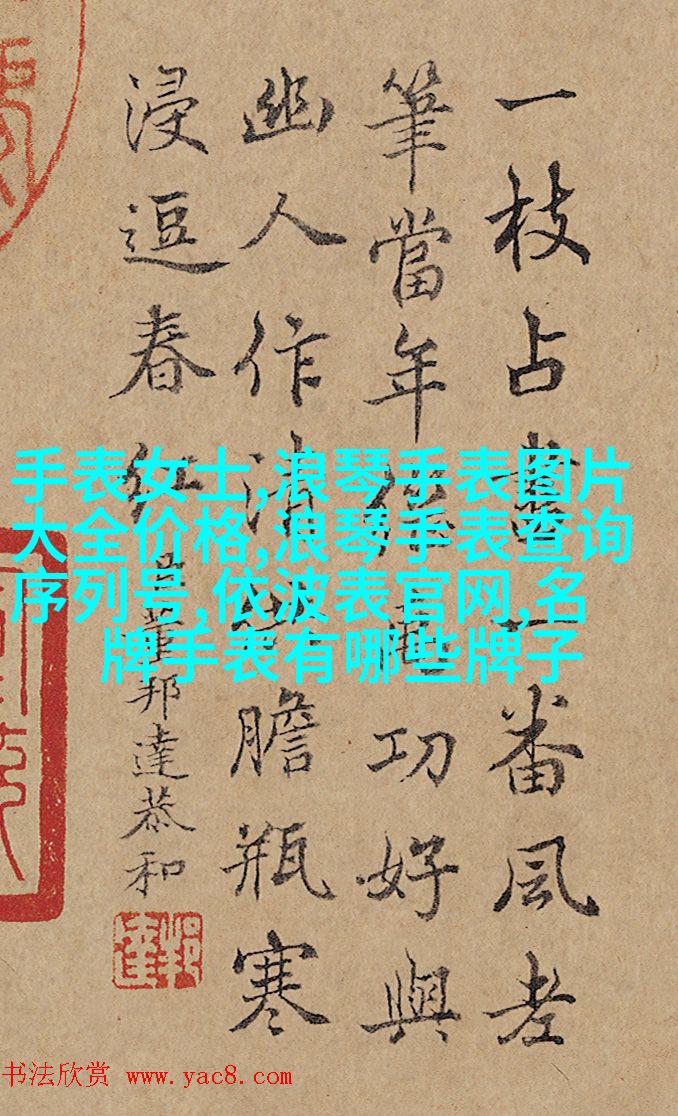 一枝占一番風老
筆當年功好與
幽人作清膽瓶寒
浸逗春紅
臣董邦達恭和
手表女士,浪琴手表图片
大全价格,浪琴手表查询
序列号,依波表官网,名
牌手表有哪些牌子
书法欣赏 www.yac8.com